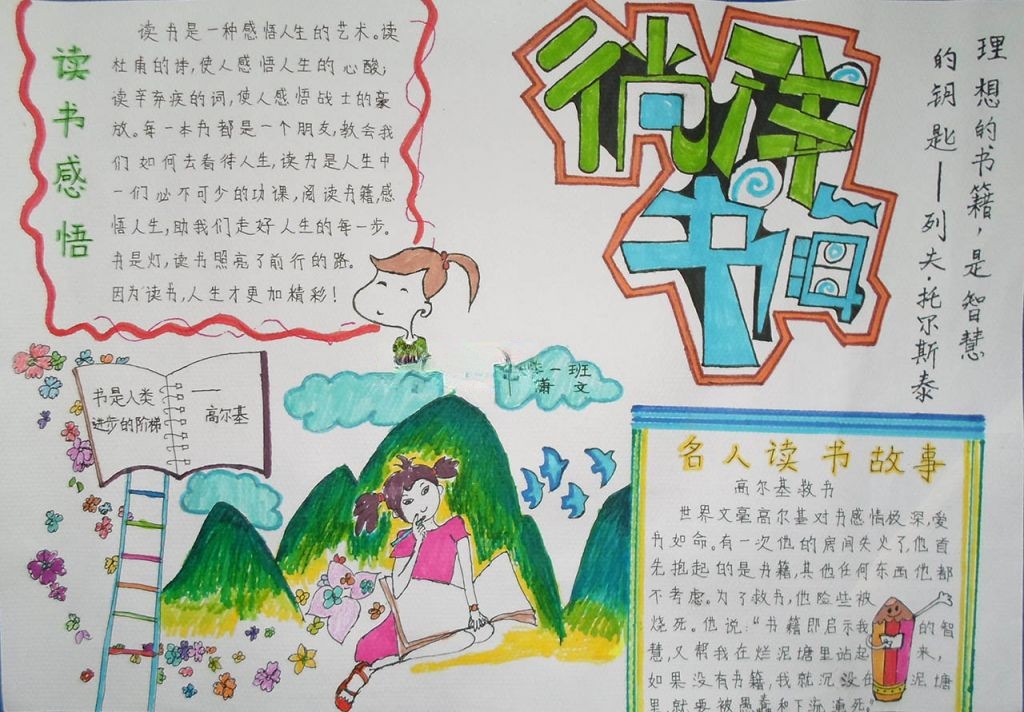 读书感悟
读书是一种感悟人生的艺术。读
杜甫的诗，使人感悟人生的心酸；
读辛弃疾的词，使人感悟战士的豪
放。每一本书都是一个朋友，教会我
们如何去看待人生，读书是人生中
一们必不可少的功课，阅读书籍，感
悟人生，助我们走好人生的每一步。
书是灯，读书照亮了前行的路。
因为读书，人生才更加精彩！
徜徉
书海
理想的书籍，是智慧
的钥匙——列夫·托尔斯泰
书是人类
进步的阶梯
——
高尔基
一班
文
名人读书故事
高尔基救书
世界文豪高尔基对书感情极深，爱
书如命。有一次他的房间失火了，他首
先抱起的是书籍，其他任何东西他都
不考虑。为了救书，他险些被
烧死。他说：“书籍即启示我的智
慧，又帮我在烂泥塘里站起来，
如果没有书籍，我就沉没在泥塘
里，就要被愚蠢和下流淹死。”